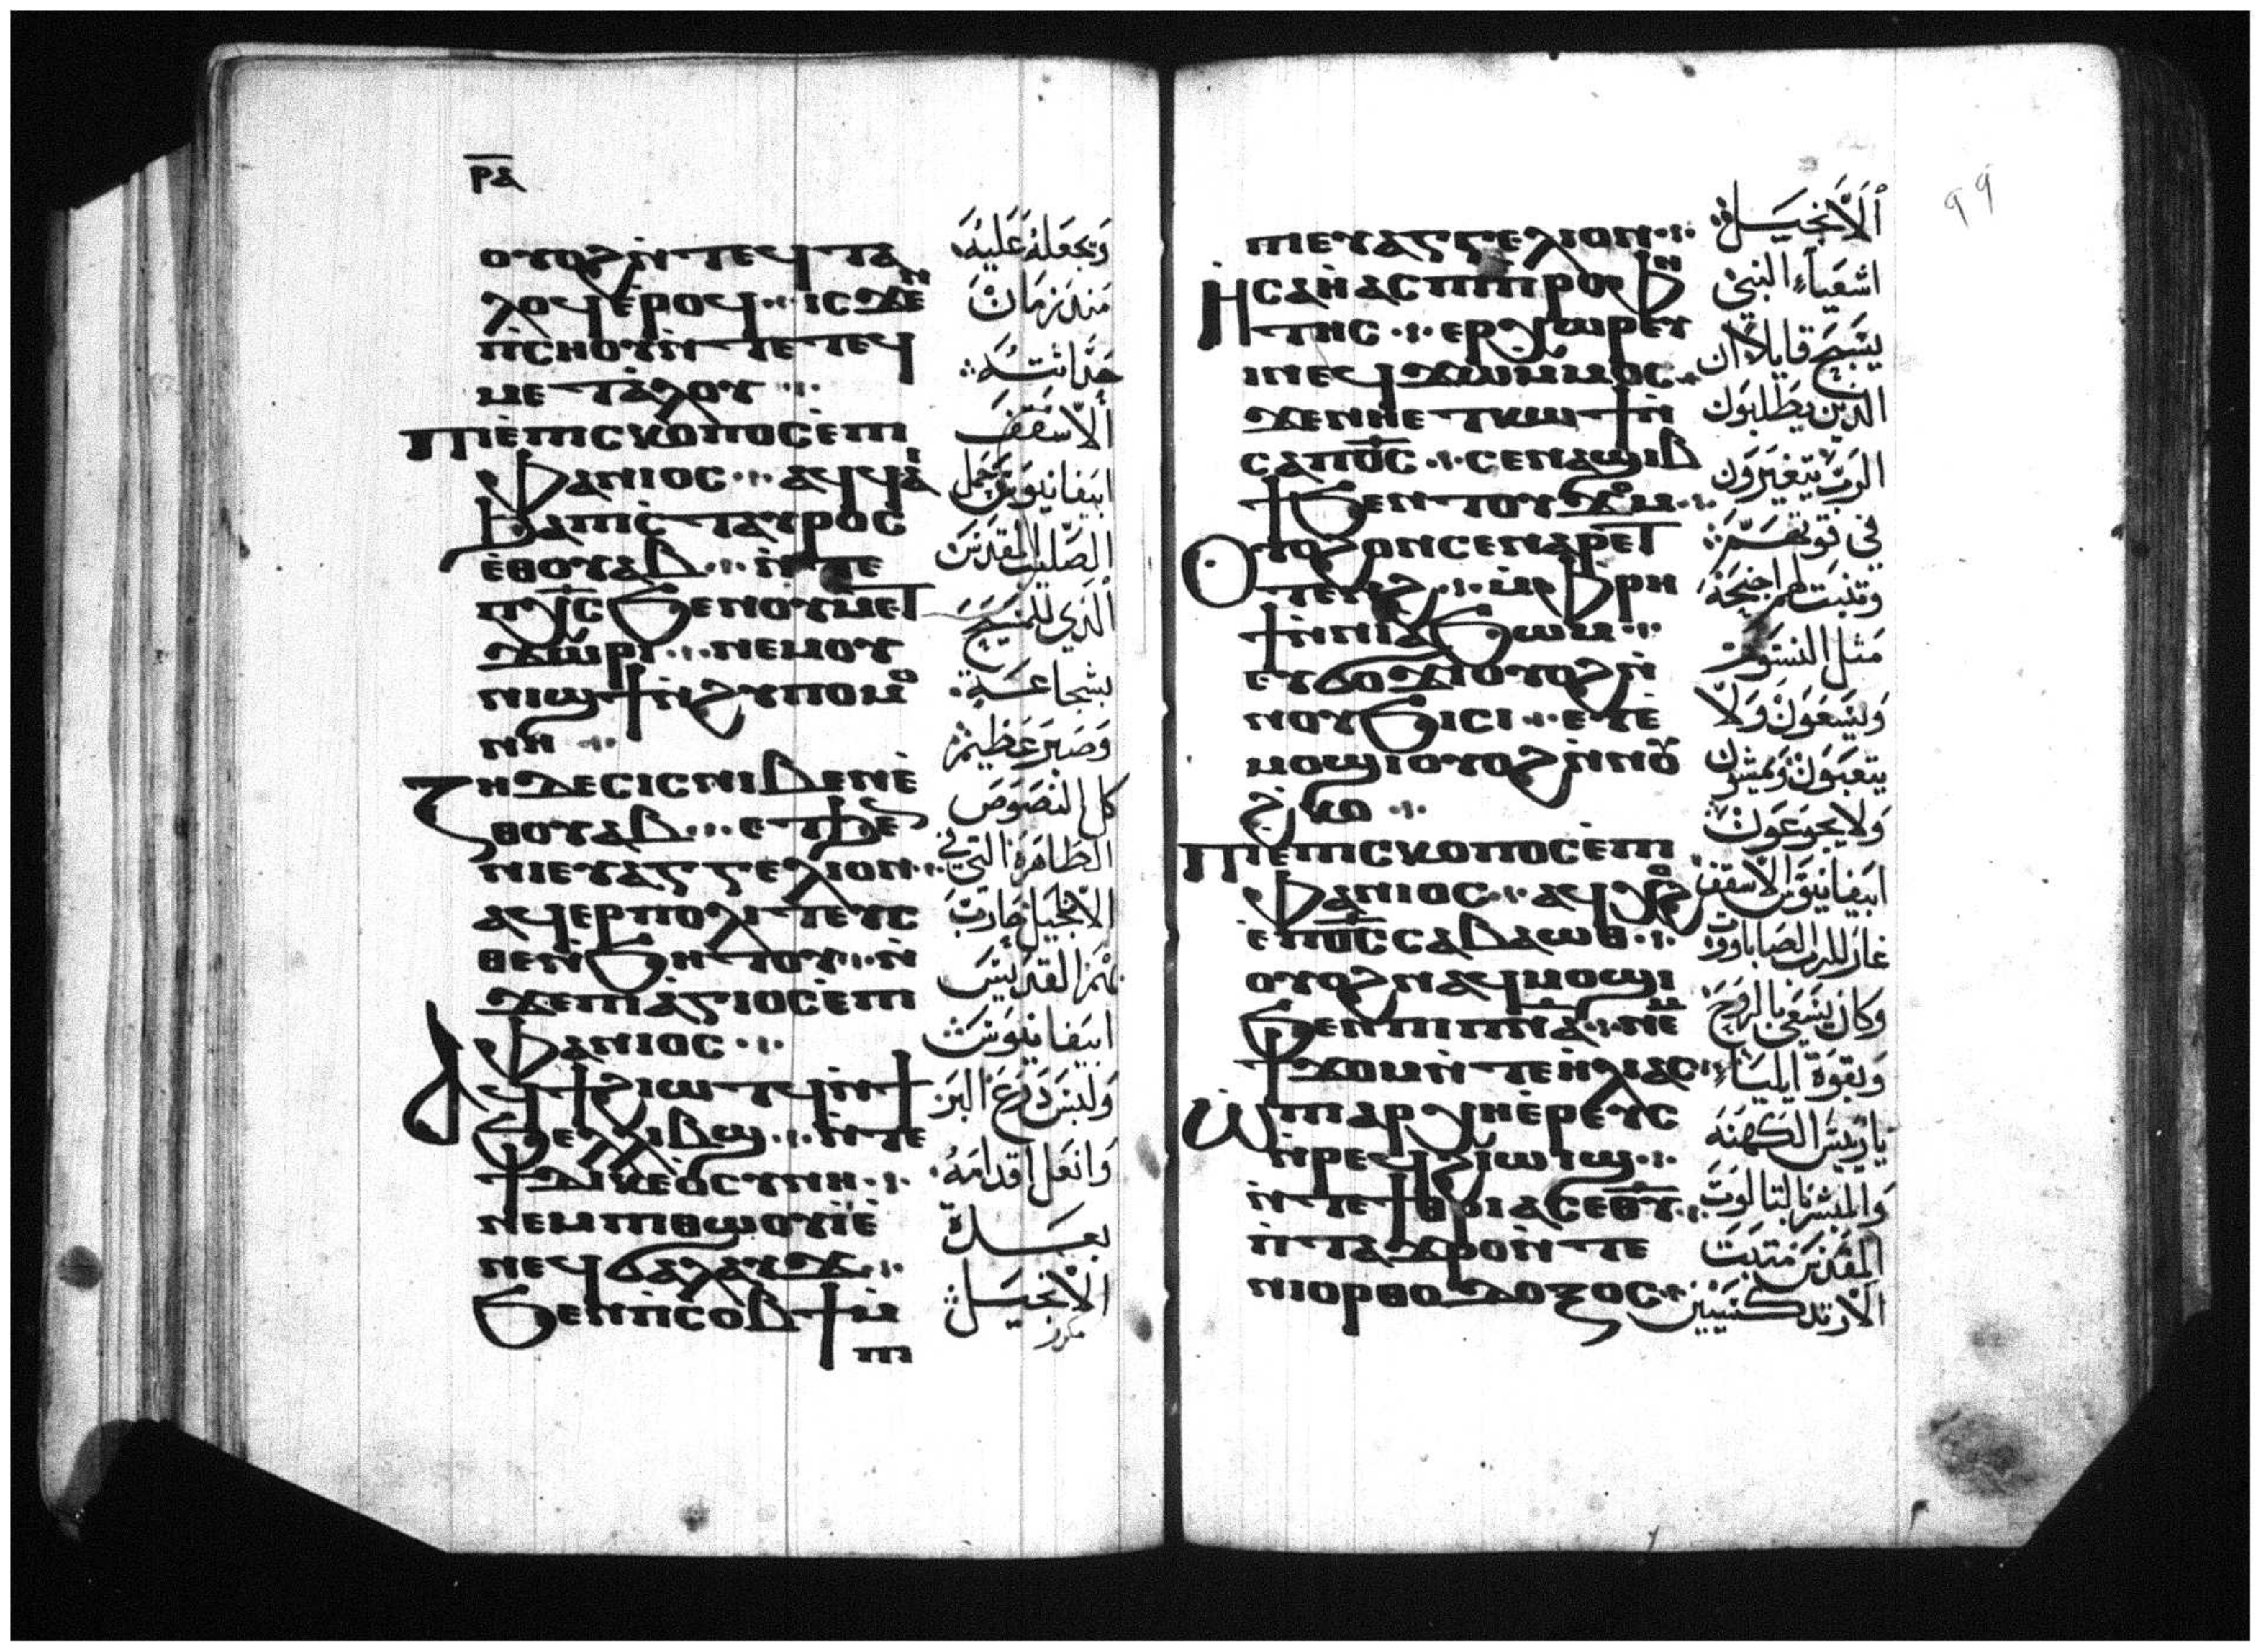 ⲣⲁ
ⲟⲩⲟϩⲛ̀ⲧⲉϥⲧⲁ
ⲗⲟϥⲉ̀ⲣⲟϥ·:· ⲓⲥϫⲉⲛ
ⲡ̀ⲥⲏⲟⲩⲛ̀ⲧⲉⲧⲉϥ
ⲙⲉⲧⲁ̀ⲗⲟⲩ·:·
ⲡⲓⲉ̀ⲡⲓⲥⲕⲟⲡⲟⲥⲉ̀ⲡⲓ
ⲫⲁⲛⲓⲟⲥ·:· ⲁϥϥⲁ̀
ϧⲁⲡⲓⲥ̀ⲧⲁⲩⲣⲟⲥ
ⲉ̀ⲑⲟⲩⲁⲃ·:· ⲛ̀ⲧⲉ
ⲡⲭ̅ⲥ̅ϧⲉⲛⲟⲩⲙⲉⲧ
ϫⲱⲣⲓ·:· ⲛⲉⲙⲟⲩ
ⲛⲓϣϯⲛ̀ϩⲩⲡⲟⲙⲟ
ⲛⲏ·:·
ⲍⲏⲇⲉⲥⲓⲥⲛⲓⲃⲉⲛⲉ̀
ⲑⲟⲩⲁⲃ·:· ⲉⲧϧⲉⲛ
ⲡⲓⲉⲩⲁⲅⲅⲉⲗⲓⲟⲛ·:·
ⲁϥⲉⲣⲡⲟⲗⲓⲧⲉⲩⲥ
ⲑⲉⲛ̀ϧⲏⲧⲟⲩ·:· ⲛ̀
ϫⲉⲡⲓⲁ̀ⲅⲓⲟⲥⲉ̀ⲡⲓ
ⲫⲁⲛⲓⲟⲥ·:·
ⲁϥϯϩⲓⲱⲧϥⲛ̀ϯ
ϧⲉⲗⲗⲓⲃϣ·:· ⲛ̀ⲧⲉ
ϯⲇⲓⲕⲉⲟ̀ⲥⲩⲛⲏ·:·
ⲛⲉⲙⲡⲓⲑⲱⲟⲩⲓ̀ⲉ̀
ⲛⲉϥϭⲁⲗⲁⲩϫ·:·
ϧⲉⲛⲡ̀ⲥⲟⲃϯⲙ̀
ⲡⲓ
وتجعله عليه
منذ زمان
حداثته
ألاسقف
ابيفانيوس حمل
الصليب المقدس
ألذي للمسيح
بشجاعة
وصبر عظيم
كل النصوص
الطاهرة التي في
الانجيل
بهم القديس
ابيفانيوس
ولبس درع البر
وانعل اقدامه
بعدة
الانجيل
ⲡⲓⲉⲩⲁⲅⲅⲉⲗⲓⲟⲛ·:·
ⲏ̀ⲥⲁⲏ̀ⲁⲥⲡⲓⲡⲣⲟⲫⲏ
ⲧⲏⲥ·:· ⲉⲣⲭⲱⲣⲉⲩ
ⲓⲛⲉϥϫⲱⲙⲙⲟⲥ·:·
ϫⲉⲛⲏⲉⲧⲕⲱϯⲛ̀
ⲥⲁⲡⲟ̅ⲥ̅·:· ⲥⲉⲛⲁϣⲓⲃ
ϯϧⲉⲛⲧⲟⲩϫⲟⲙ·:·
ⲟⲩⲟϩⲟⲛⲥⲉⲛⲁⲣⲉⲧ
ⲧⲉⲛϩ·:· ⲙ̀ⲫⲣⲏ
ϯⲛ̀ⲛⲓⲁϧⲱⲙ·:·
ⲉⲩϭⲟϫⲓⲟⲩⲟϩⲛ̀
ⲛⲟⲩϧⲓⲥⲓ·:· ⲉⲩⲉ̀
ⲙⲟϣⲓⲟⲩⲟϩⲛ̀ⲛⲟⲩ
ϩⲕⲟ·:·
ⲡⲓⲉ̀ⲡⲓⲥⲕⲟⲡⲟⲥⲉ̀ⲡⲓ
ⲫⲁⲛⲓⲟⲥ·:· ⲁϥⲭⲟϩ
ⲉ̀ⲡⲟ̅ⲥ̅ⲥⲁⲃⲁⲱⲑ·:·
ⲟⲩⲟϩⲛⲁϥⲙⲟϣⲓ
ϧⲉⲛⲡⲓⲡⲛ̅ⲁ̅·:· ⲛⲉⲙ
ϯϫⲟⲙⲛ̀ⲧⲉⲏ̀ⲗⲓⲁⲥ·:·
ⲱ̀ⲡⲓⲁⲣⲭⲏⲉ̀ⲣⲉⲩⲥ
ⲛ̀ⲣⲉϥϩⲓⲱⲓϣ·:·
ⲛ̀ⲧⲉϯⲑⲣⲓⲁⲥⲉⲑⲩ·:·
ⲡ̀ⲧⲁϫⲣⲟⲛ̀ⲧⲉ
ⲛⲓⲟⲣⲑⲟⲇⲟⲝⲟⲥ·:·
٩٩
ألانجيل
اشعياء النبي
يسبح قايلا ان
الذين يطلبون
الرب يتغيرون
في قوتهم
وتنبت لهم اجنحة
مثل النسور
ويسعون ولا
يتعبون ويمشون
ولا يجوعون
ابيفانيوس الاسقف
غار للرب الصاباووت
وكان يسعى بالروح
وبقوة ايلياء
يا رييس الكهنه
والمبشر بالتالوت
المقدس متبت
الارتدكسيين